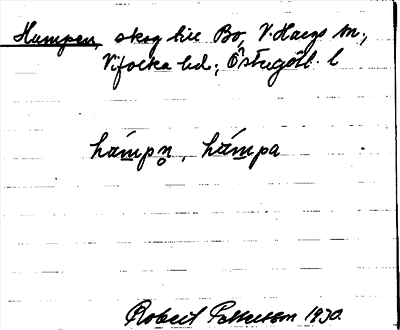 Humpen, skog till Bo, V. Hargs sn;
Vifolka hd; Östergötl. l
håmpn̥, håmpa
Robert Pettersson 1930.